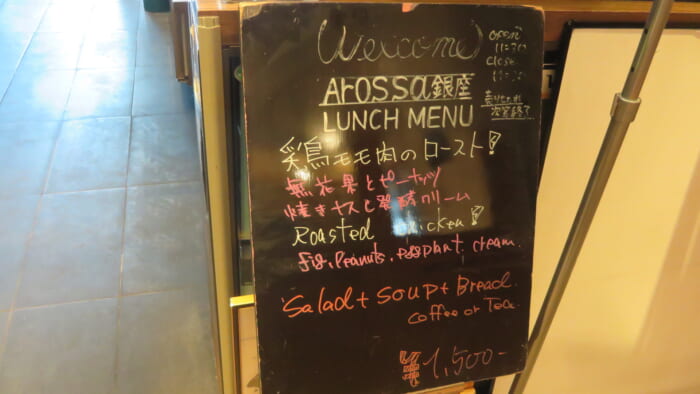 Welcome
open
11:30
close
Arossa銀座
LUNCH MENU
売りきれ次第終了
鶏モモ肉のロースト!
無花果とピーナッツ
焼きナスと発酵クリーム
Roasted chicken!
fig, Peanuts, eggplant, cream.
Salad + Soup + Bread.
coffee or Tea.
¥1,500-